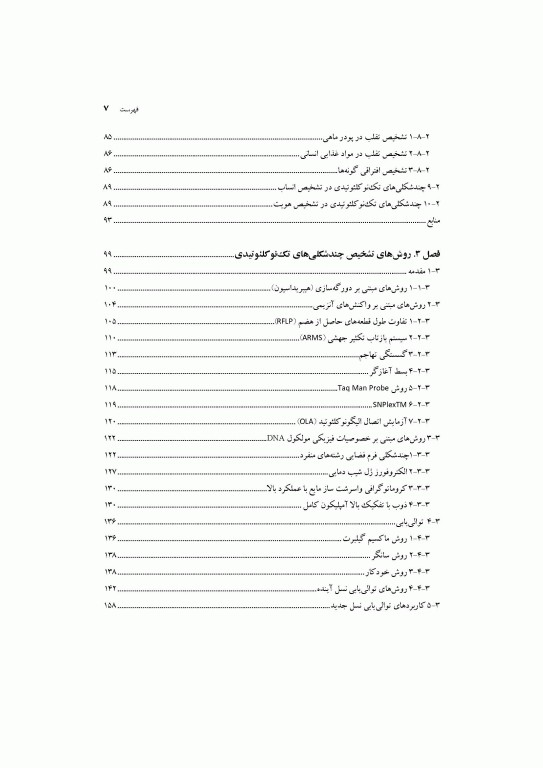 فهرست ۷
۲-۸-۱ تشخیص تقلب در پودر ماهی ۸۵
۲-۸-۲ تشخیص تقلب در مواد غذایی انسانی ۸۶
۲-۸-۳ تشخیص افتراقی گونه‌ها ۸۶
۲-۹ چندشکلی‌های تک‌نوکلئوتیدی در تشخیص انساب ۸۹
۲-۱۰ چندشکلی‌های تک‌نوکلئوتیدی در تشخیص هویت ۸۹
منابع ۹۳
فصل ۳. روش‌های تشخیص چندشکلی‌های تک‌نوکلئوتیدی ۹۹
۳-۱ مقدمه ۹۹
۳-۱-۱ روش‌های مبتنی بر دورگه‌سازی (هیبریداسیون) ۱۰۰
۳-۲ روش‌های مبتنی بر واکنش‌های آنزیمی ۱۰۴
۳-۲-۱ تفاوت طول قطعه‌های حاصل از هضم (RFLP) ۱۰۵
۳-۲-۲ سیستم بازتاب تکثیر جهشی (ARMS) ۱۱۰
۳-۲-۳ گسستگی تهاجم ۱۱۳
۳-۲-۴ بسط آغازگر ۱۱۵
۳-۲-۵ روش Taq Man Probe ۱۱۸
۳-۲-۶ SNPlexTM ۱۱۹
۳-۲-۷ آزمایش اتصال الیگونوکلئوتید (OLA) ۱۲۰
۳-۳ روش‌های مبتنی بر خصوصیات فیزیکی مولکول DNA ۱۲۲
۳-۳-۱ چندشکلی فرم فضایی رشته‌های منفرد ۱۲۲
۳-۳-۲ الکتروفورز ژل شیب دمایی ۱۲۷
۳-۳-۳ کروماتوگرافی واسرشت ساز مایع با عملکرد بالا ۱۳۰
۳-۳-۴ ذوب با تفکیک بالا آمپلیکون کامل ۱۳۰
۳-۴ توالی‌یابی ۱۳۶
۳-۴-۱ روش ماکسیم گیلبرت ۱۳۶
۳-۴-۲ روش سانگر ۱۳۸
۳-۴-۳ روش خودکار ۱۳۸
۳-۴-۴ روش‌های توالی‌یابی نسل آینده ۱۴۲
۳-۵ کاربردهای توالی‌یابی نسل جدید ۱۵۸